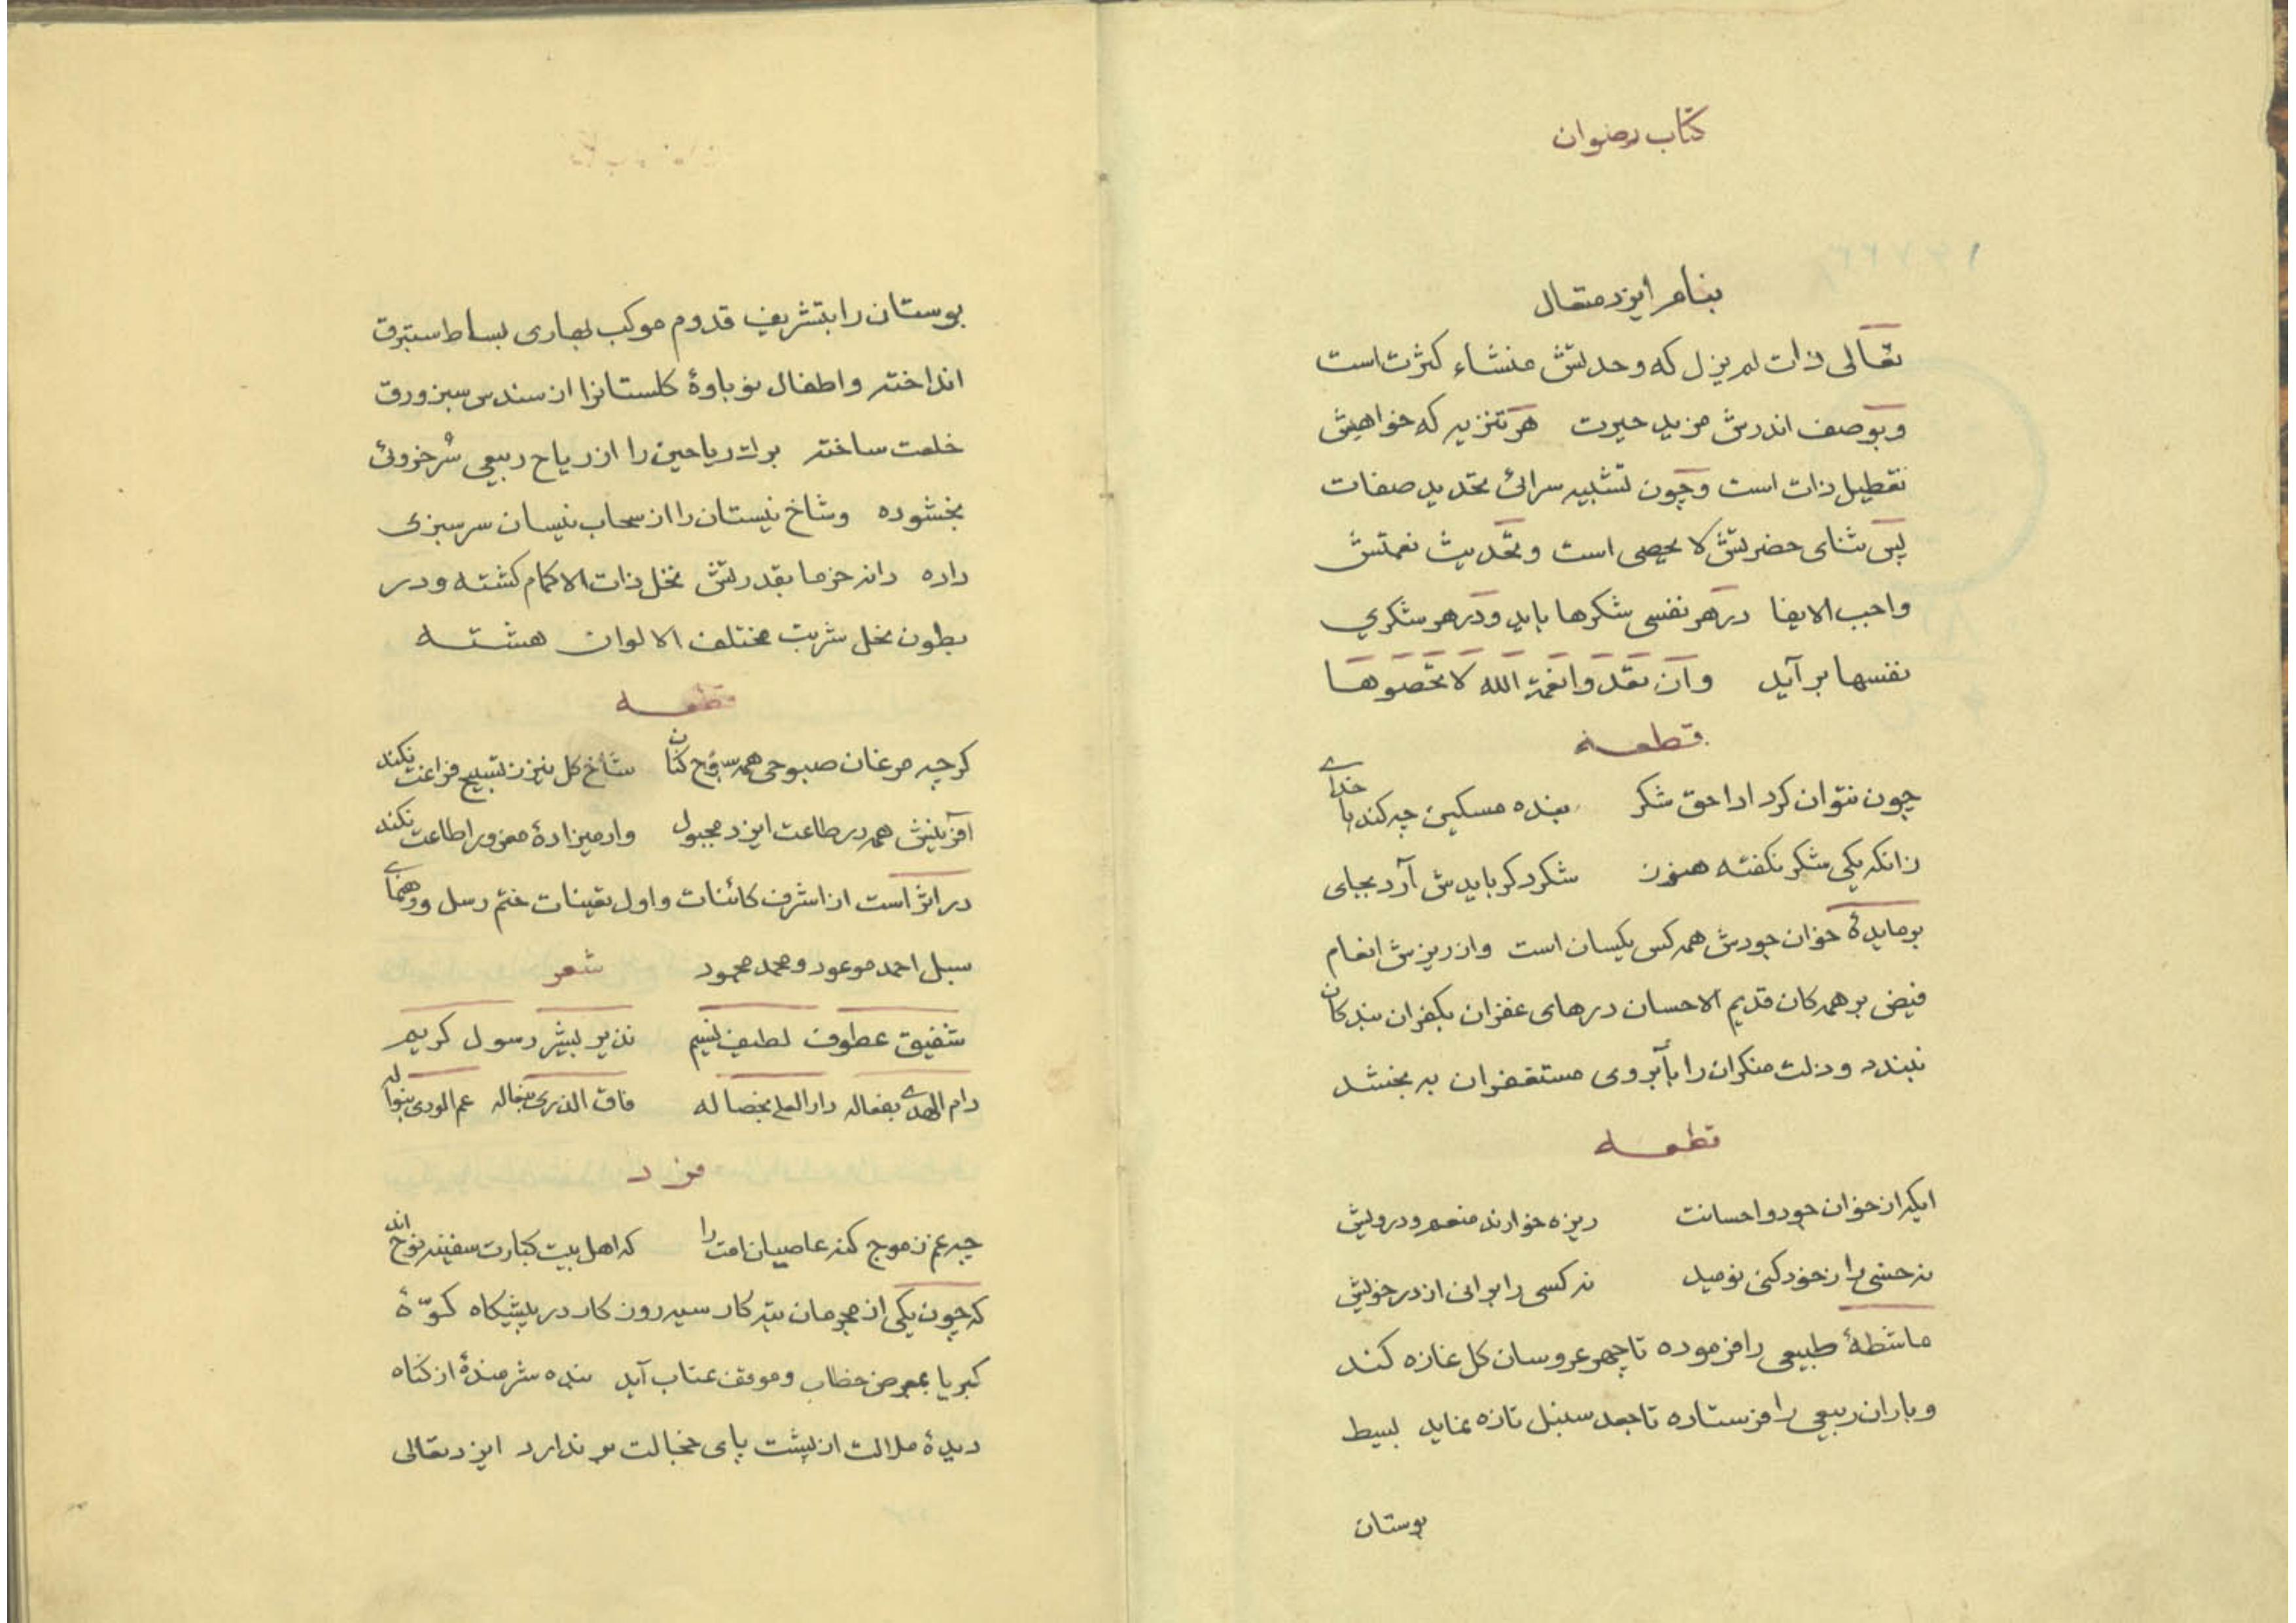 کتاب رضوان
بنام ایزد متعال
تعالی ذات لم یزل که وحدتش منشاء کثرت است
و بوصف اندرش مزید حیرت هر تنزیه که خواهیش
تعطیل ذات است و چون تشبیه سرائی تحدید صفات
پس ثنای حضرتش لا یحصی است و تحدیث نعمتش
واجب الایفا در هر نفسی شکرها باید و در هر شکری
نفسها بر آید و ان تعدوا نعمة الله لا تحصوها
قطعه
چون نتوان کرد ادا حق شکر بنده مسکین چه کند با خدای
زانکه یکی شکر نکفته هنوز شکر دکر بایدش آرد بجای
بر مایدۀ خوان جودش همه کس یکسان است و از ریزش انعام
فیض بر همه کان قدیم الاحسان درهای غفران بکفران بندکان
نبندد و زلت منکران را بآبروی مستغفران به بخشد
قطعه
ایکه از خوان جود و احسانت ریزه خوارند منعم و درویش
نه خسی را ز خود کنی نومید نه کسی را برانی از در خویش
ماشطۀ طبیعی را فرموده تا چهر عروسان کل غازه کند
و باران ربیعی را فرستاده تا جعد سنبل تازه نماید بسیط
بوستان
بوستان را بتشریف قدوم موکب بهاری بساط ستبرق
انداخته و اطفال نوباوۀ کلستانرا از سندس سبز ورق
خلعت ساخته برات ریاحین را از ریاح ربیعی سرخروئی
بخشوده و شاخ نیستان را از سحاب نیسان سرسبزی
داده دانه خرما بقدرتش نخل ذات الاکمام کشته و در
بطون نحل شربت مختلف الالوان هشته
قطعه
کرچه مرغان صبوحی همه سبوح کنان شاخ کل نیز ز تسبیح فراغت نکند
آفرینش همه در طاعت ایزد مجبول وادمیزادۀ مغرور اطاعت نکند
در اثر است از اشرف کائنات و اول تعینات ختم رسل و رهنمای
سبل احمد موعود و محمد محمود شعر
شفیق عطوف لطیف نسیم نذیر بشیر رسول کریم
رام الهدی بفعاله دار العلی بخصاله فاق الذری بنواله
فرد
چه غم ز موج کنه عاصیان امت را که اهل بیت کبارت سفینه نوح اند
که چون یکی از مجرمان تبه کار سیه روزکار در پیشکاه کوّۀ
کبریا بمعرض خطاب و موقف عتاب آید بنده شرمندۀ از کناه
دیدۀ ملالت از پشت پای خجالت بر ندارد ایزد تعالی